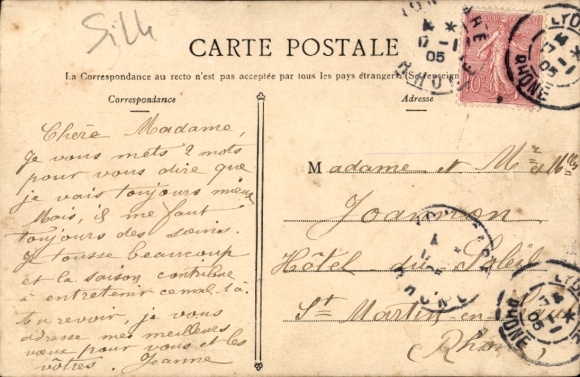 Silk
CARTE POSTALE
La Correspondance au recto n'est pas acceptée par tous les pays étrangers (Se renseign
Correspondance
Adresse
Chère Madame,
Je vous mets 2 mots
pour vous dire que
je vais toujours mieux
Mais, il me faut
toujours des soins.
Je tousse beaucoup
et la saison contribue
à entretenir ce mal-là.
Au revoir, je vous
adresse mes meilleurs
vœux pour vous et les
vôtres. Jeanne
Madame et Mr et Mlle
Joannon
Hôtel du Soleil
St Martin-en-
(Rhône)
10
LYON
17-1
05
RHONE
RHONE
17-1
05
RHONE
LYON
17-1
05
RHONE